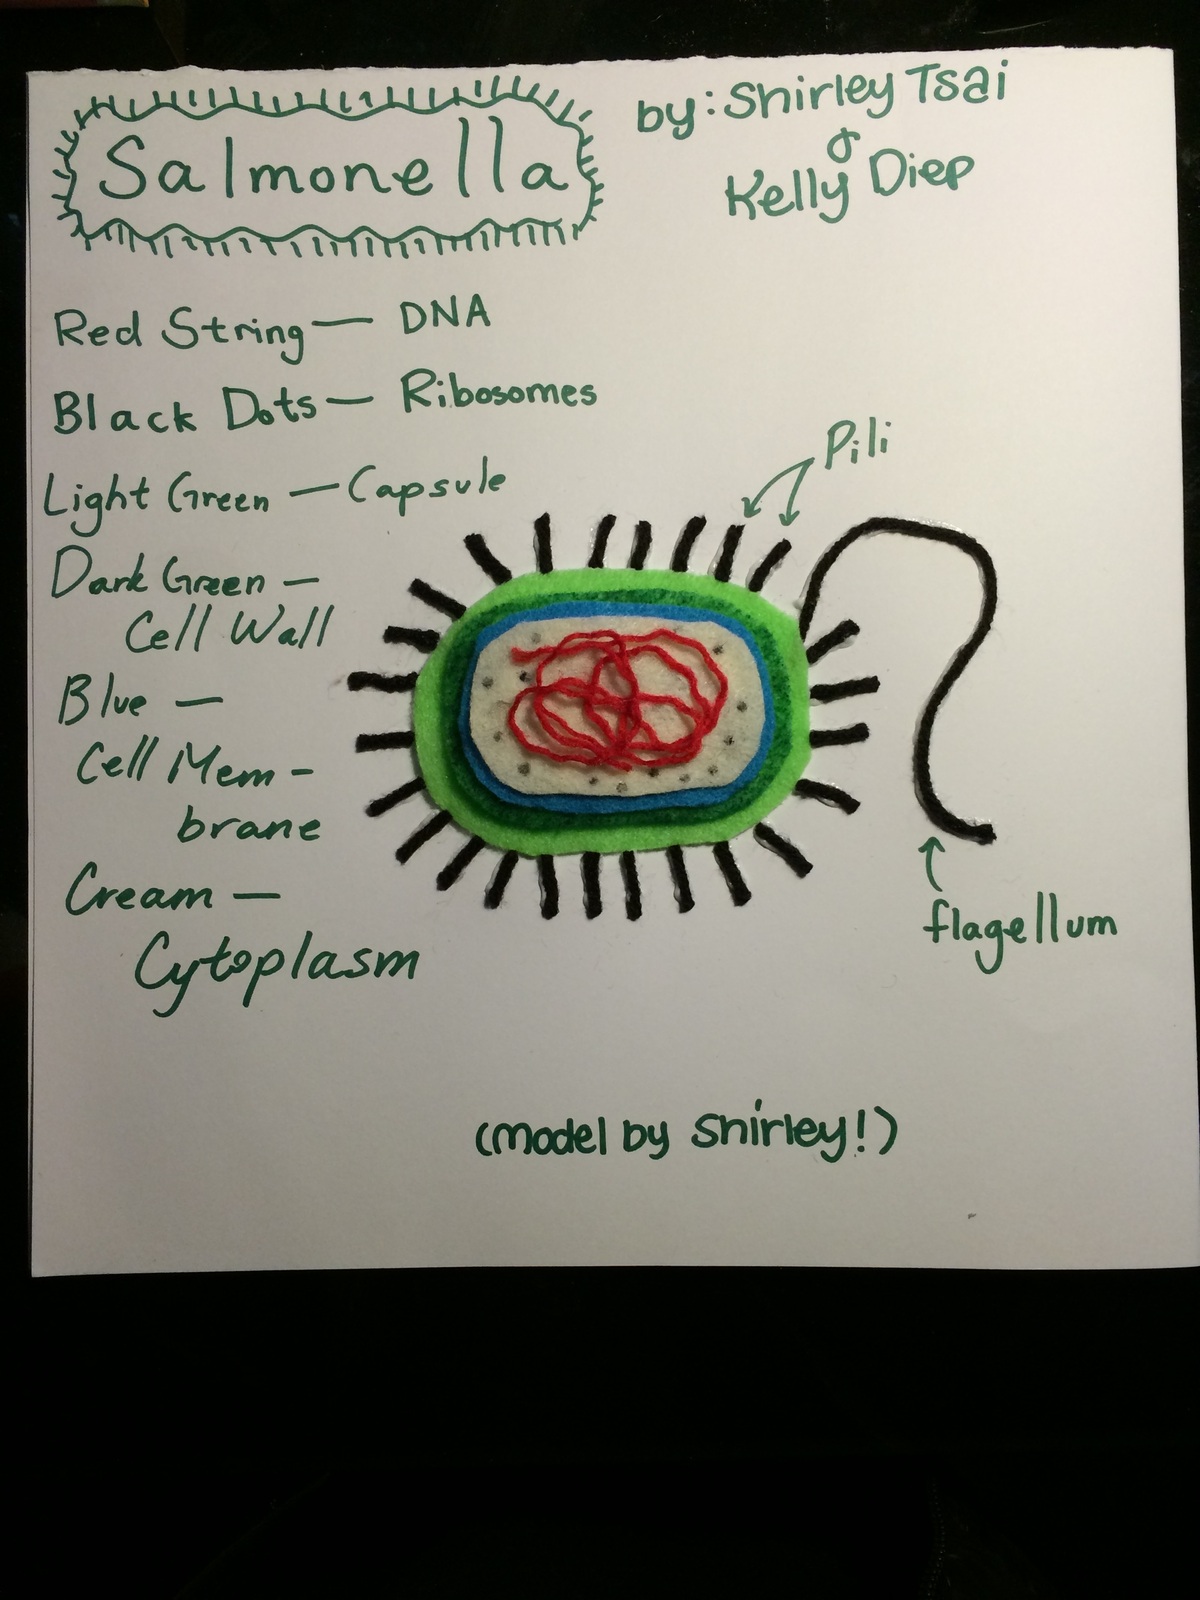 Salmonella
by: Shirley Tsai
&
Kelly Diep
Red String — DNA
Black Dots — Ribosomes
Light Green — Capsule
Dark Green —
Cell Wall
Blue —
Cell Mem-
brane
Cream —
Cytoplasm
Pili
flagellum
(model by Shirley!)